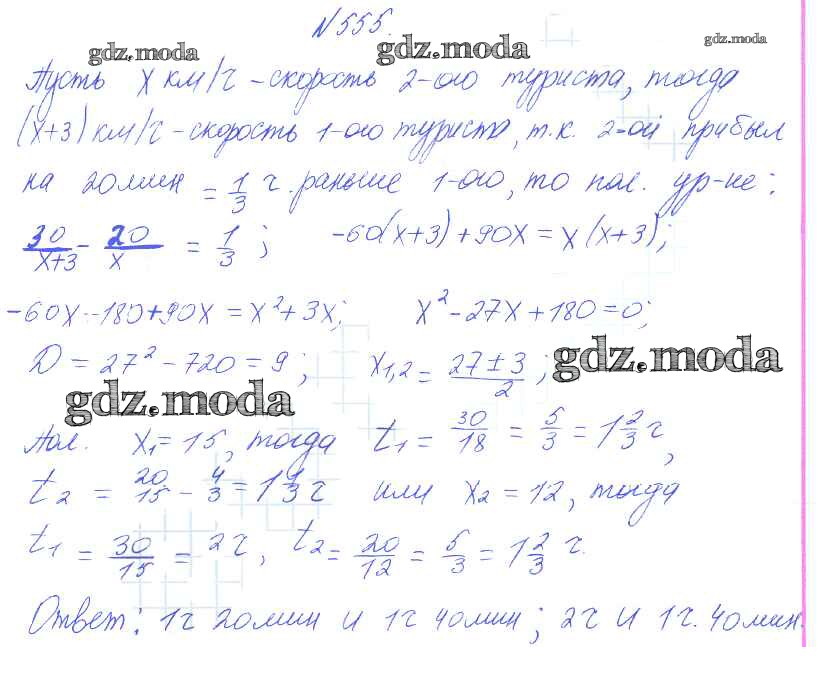 N 555.
gdz.moda gdz.moda gdz.moda
Пусть x км/ч - скорость 2-ого туриста, тогда
(x+3) км/ч - скорость 1-ого туриста, т.к. 2-ой прибыл
на 20мин = 1/3 ч. раньше 1-ого, то пол. ур-ие:
30/x+3 - 20/x = 1/3; -60(x+3)+90x = x(x+3);
-60x-180+90x = x²+3x; x²-27x+180=0;
D = 27²-720 = 9; x1,2 = 27±3/2; gdz.moda
gdz.moda
Пол. x1=15, тогда t1 = 30/18 = 5/3 = 1 2/3 ч,
t2 = 20/15 - 4/3 = 1 1/3 ч или x2 = 12, тогда
t1 = 30/15 = 2ч, t2 = 20/12 = 5/3 = 1 2/3 ч.
Ответ: 1ч 20мин и 1ч 40мин; 2ч и 1ч. 40мин.